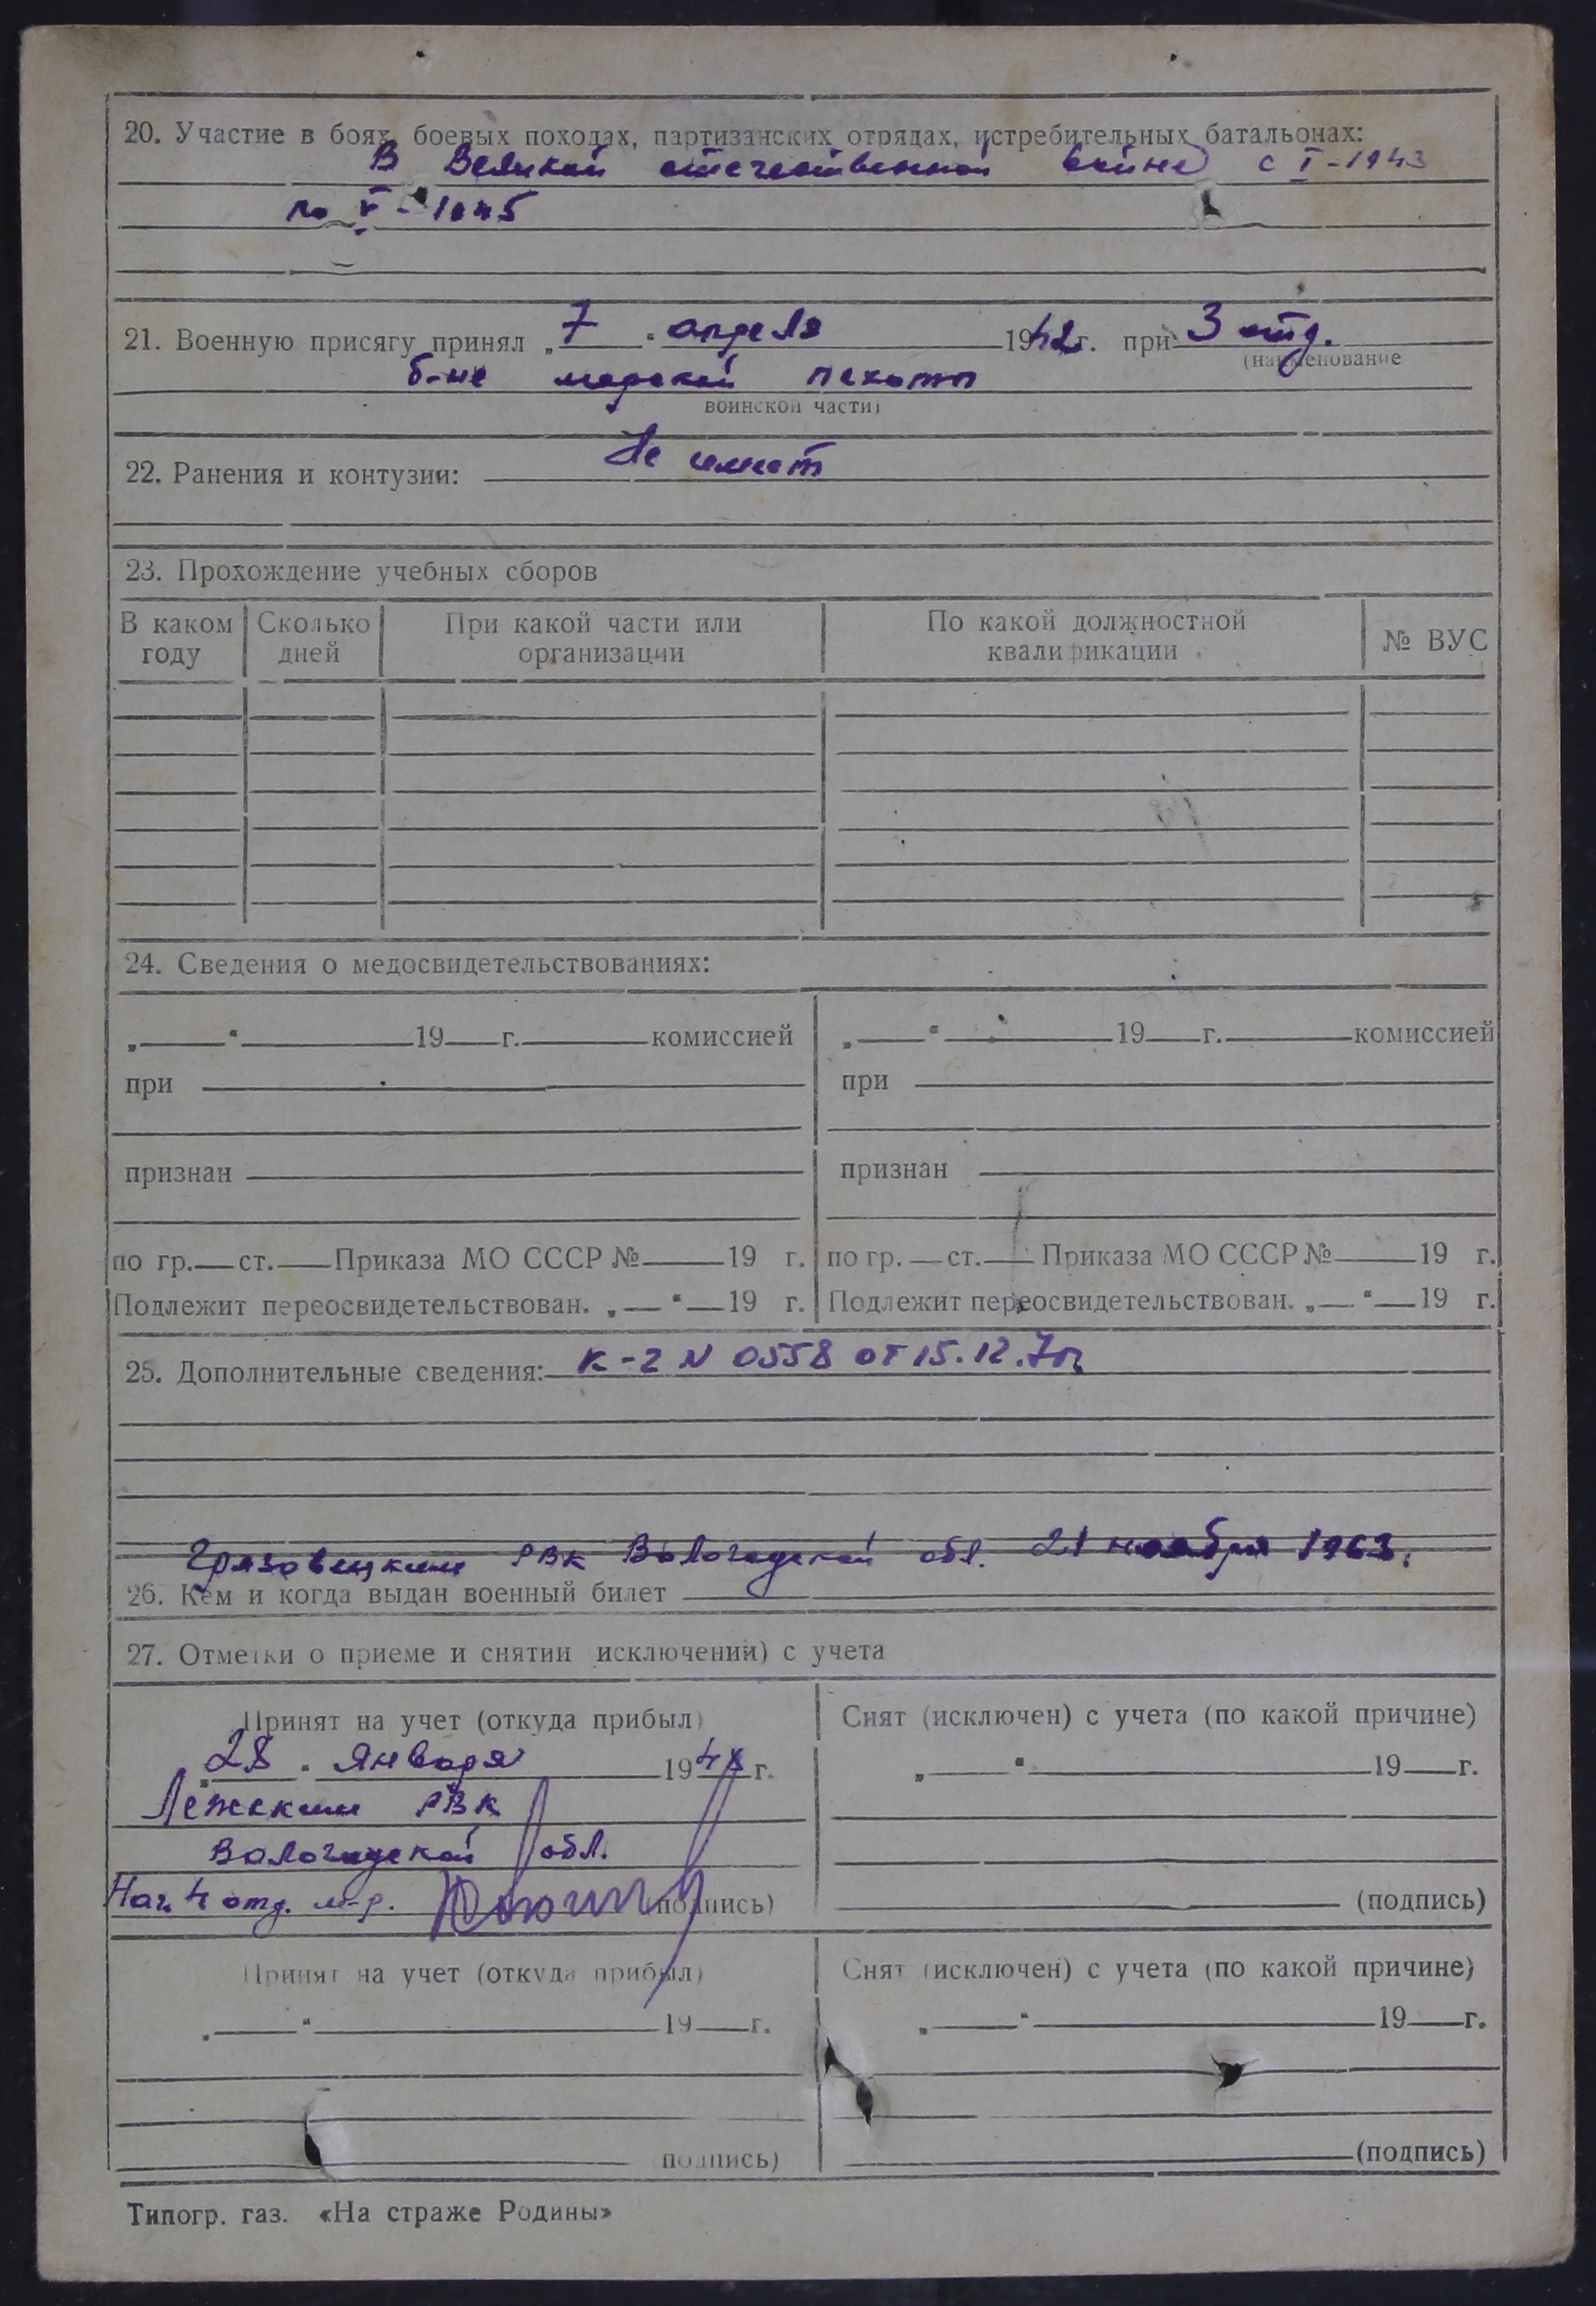 20. Участие в боях, боевых походах, партизанских отрядах, истребительных батальонах:
В Великой отечественной войне с I-1943
по V-1945
21. Военную присягу принял „7“ апреля 1942г. при 3 отд.
(наименование
б-не морской пехоты
воинской части)
22. Ранения и контузии: Не имеет
23. Прохождение учебных сборов
В каком году
Сколько дней
При какой части или организации
По какой должностной квалификации
№ ВУС
24. Сведения о медосвидетельствованиях:
„ “ 19 г. комиссией
при
признан
по гр. ст. Приказа МО СССР № 19 г.
Подлежит переосвидетельствован. „ “ 19 г.
„ “ 19 г. комиссией
при
признан
по гр. ст. Приказа МО СССР № 19 г.
Подлежит переосвидетельствован. „ “ 19 г.
25. Дополнительные сведения: К-2 N 0558 от 15.12.
Грязовецким РВК Вологодской обл. 21 ноября 1963.
26. Кем и когда выдан военный билет
27. Отметки о приеме и снятии исключении) с учета
Принят на учет (откуда прибыл)
„28“ января 1948 г.
Лежским РВК
Вологодской обл.
Нач. 4 отд. м-р. (подпись)
Снят (исключен) с учета (по какой причине)
„ “ 19 г.
(подпись)
Принят на учет (откуда прибыл)
„ “ 19 г.
подпись)
Снят (исключен) с учета (по какой причине)
„ “ 19 г.
(подпись)
Типогр. газ. «На страже Родины»